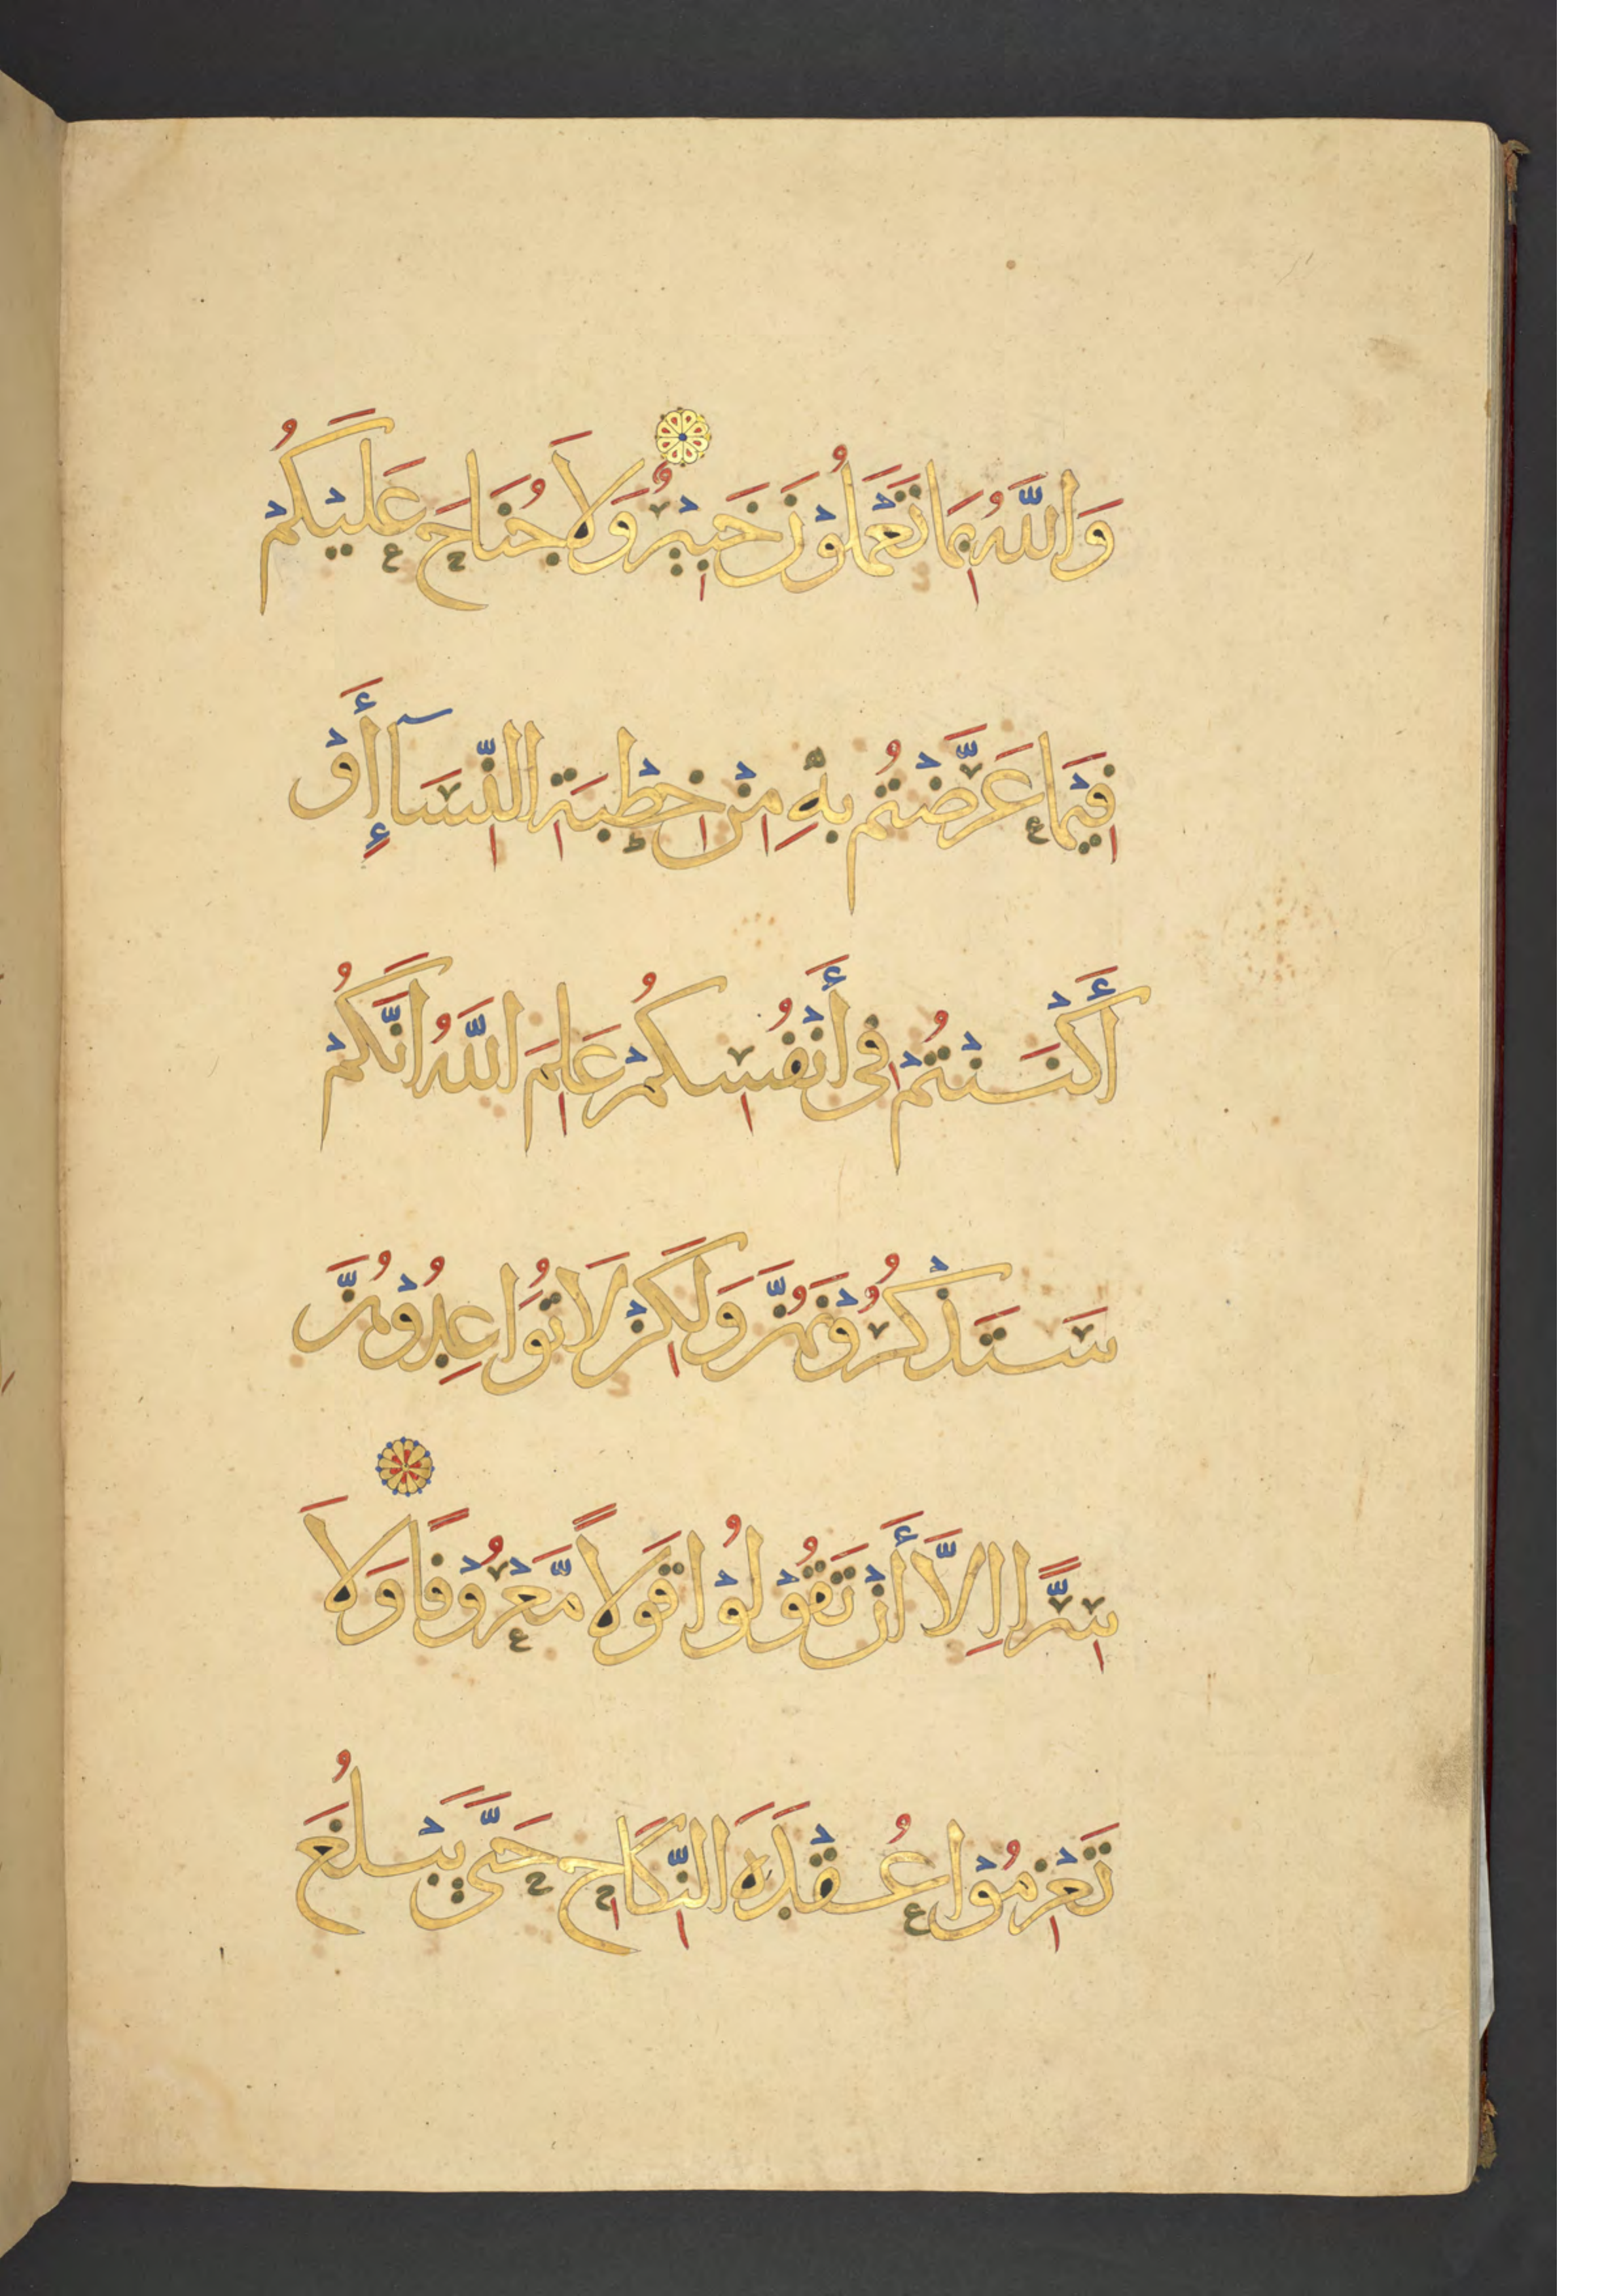 وَاللَّهُ بِمَا تَعْمَلُوْنَ خَبِيْرٌ وَلَا جُنَاحَ عَلَيْكُمْ
فِيْمَا عَرَّضْتُمْ بِهٖ مِنْ خِطْبَةِ النِّسَآءِ أَوْ
أَكْنَنْتُمْ فِي أَنْفُسِكُمْ عَلِمَ اللَّهُ انَّكُمْ
سَتَذْكُرُوْنَهُنَّ وَلَكِنْ لَا تُوَاعِدُوْهُنَّ
سِرًّا اِلَّا أَنْ تَقُوْلُوْا قَوْلًا مَّعْرُوْفًا وَلَا
تَعْزِمُوْا عُقْدَةَ النِّكَاحِ حَتَّى يَبْلُغَ